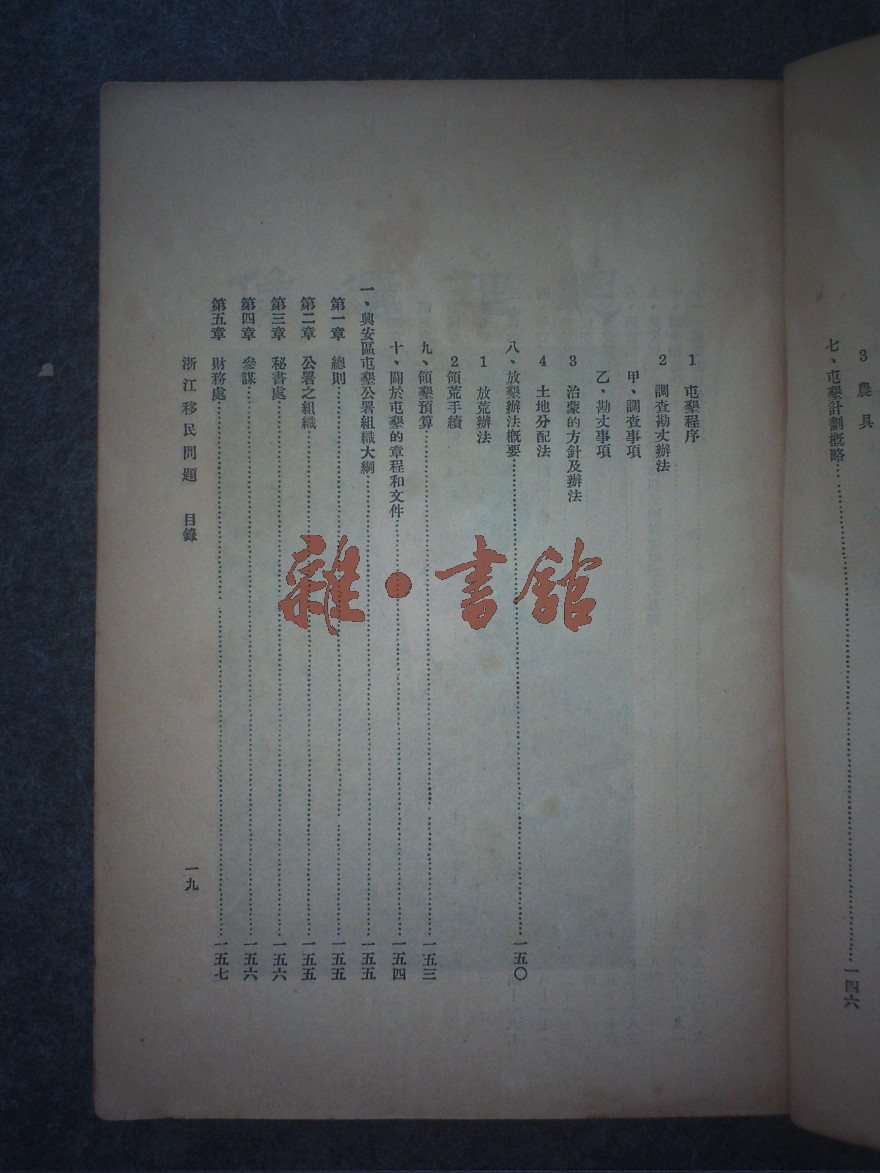 3 農具
七、屯墾計劃概略……一四六
1 屯墾程序
2 調查勘丈辦法
甲、調查事項
乙、勘丈事項
3 治蒙的方針及辦法
4 土地分配法
八、放墾辦法概要……一五〇
1 放荒辦法
2 領荒手續
九、領墾預算……一五三
十、關於屯墾的章程和文件……一五四
一、興安區屯墾公署組織大綱……一五五
第一章 總則……一五五
第二章 公署之組織……一五五
第三章 秘書處……一五六
第四章 參謀……一五六
第五章 財務處……一五七
浙江移民問題 目錄
一九
雜·書館